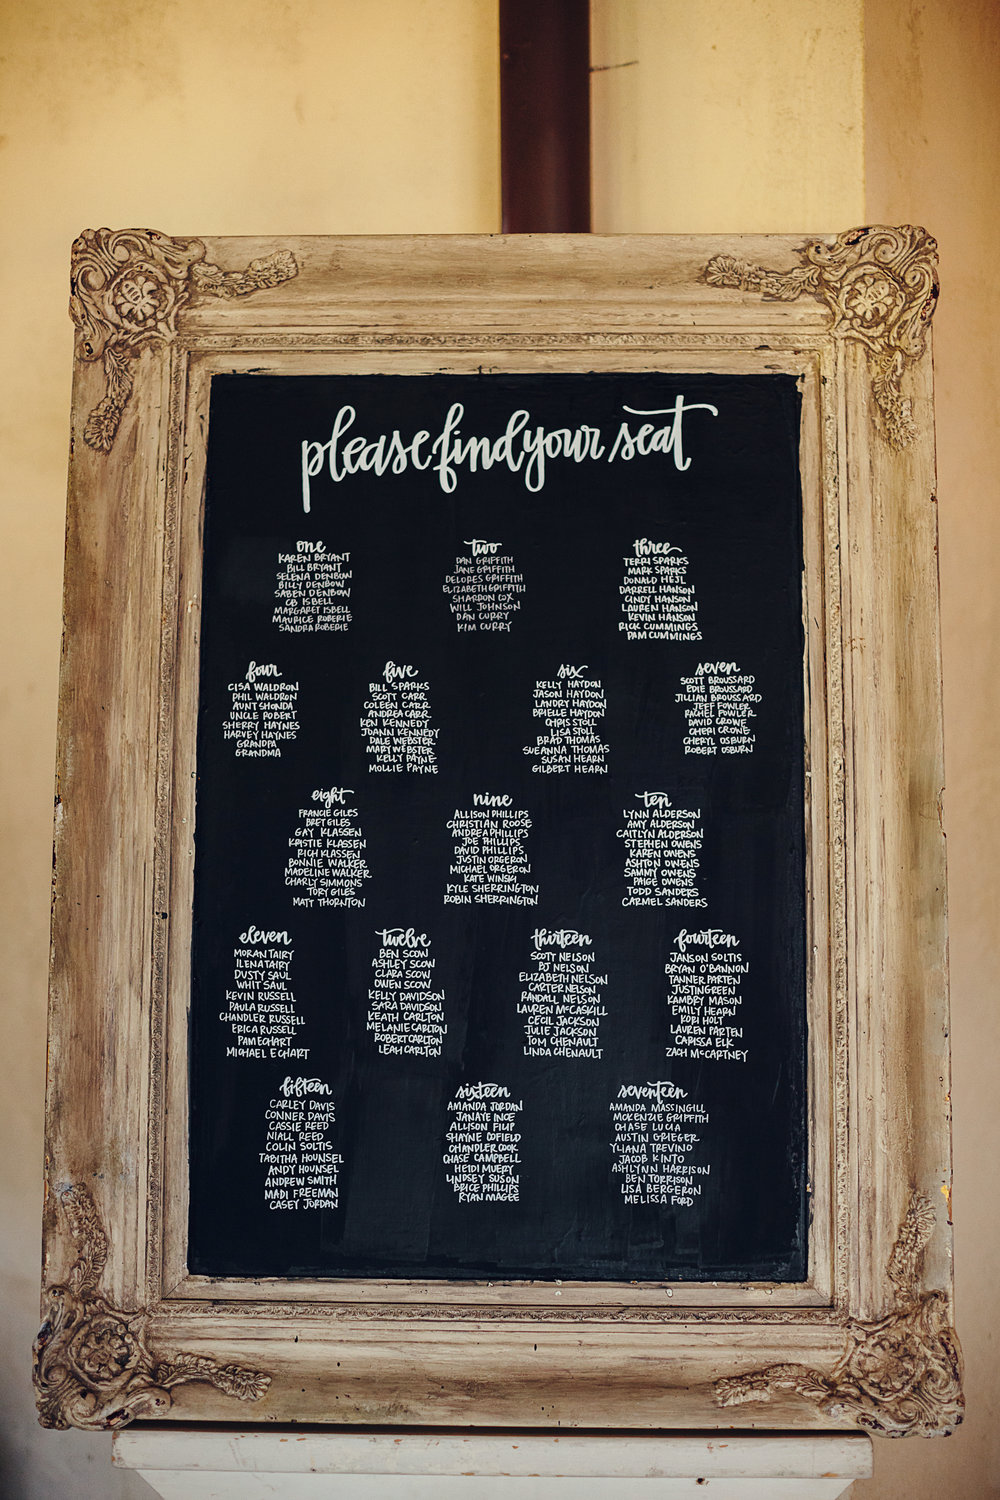 please find your seat
one
KAREN BRYANT
BILL BRYANT
SELENA DENBOW
BILLY DENBOW
SABEN DENBOW
CB ISBELL
MARGARET ISBELL
MAURICE ROBERIE
SANDRA ROBERIE
two
DAN GRIFFITH
JANE GRIFFITH
DELORES GRIFFITH
ELIZABETH GRIFFITH
SHARRON COX
WILL JOHNSON
DAN CURRY
KIM CURRY
three
TERRI SPARKS
MARK SPARKS
DONALD HEJL
DARRELL HANSON
CINDY HANSON
LAUREN HANSON
KEVIN HANSON
RICK CUMMINGS
PAM CUMMINGS
four
CISA WALDRON
PHIL WALDRON
AUNT SHONDA
UNCLE ROBERT
SHERRY HAYNES
HARVEY HAYNES
GRANDPA
GRANDMA
five
BILL SPARKS
SCOTT CARR
COLEEN CARR
ANDREA CARR
KEN KENNEDY
JOANN KENNEDY
DALE WEBSTER
MARY WEBSTER
KELLY PAYNE
MOLLIE PAYNE
six
KELLY HAYDON
JASON HAYDON
LANDRY HAYDON
BRIELLE HAYDON
CHRIS STOLL
LISA STOLL
BRAD THOMAS
SUEANNA THOMAS
SUSAN HEARN
GILBERT HEARN
seven
SCOTT BROUSSARD
EDIE BROUSSARD
JILLIAN BROUSSARD
JEFF FOWLER
RACHEL FOWLER
DAVID CROWE
CHERI CROWE
CHERYL OSBURN
ROBERT OSBURN
eight
FRANCIE GILES
BRET GILES
GAY KLASSEN
KRISTIE KLASSEN
RICH KLASSEN
BONNIE WALKER
MADELINE WALKER
CHARLY SIMMONS
TORY GILES
MATT THORNTON
nine
ALLISON PHILLIPS
CHRISTIAN ROOSE
ANDREA PHILLIPS
JOE PHILLIPS
DAVID PHILLIPS
JUSTIN ORGERON
MICHAEL ORGERON
KATE WINSKI
KYLE SHERRINGTON
ROBIN SHERRINGTON
ten
LYNN ALDERSON
AMY ALDERSON
CAITLYN ALDERSON
STEPHEN OWENS
KAREN OWENS
ASHTON OWENS
SAMMY OWENS
PAIGE OWENS
TODD SANDERS
CARMEL SANDERS
eleven
MORAN TAIRY
ILENA TAIRY
DUSTY SAUL
WHIT SAUL
KEVIN RUSSELL
PAULA RUSSELL
CHANDLER RUSSELL
ERICA RUSSELL
PAM ECHART
MICHAEL ECHART
twelve
BEN SCOW
ASHLEY SCOW
CLARA SCOW
OWEN SCOW
KELLY DAVIDSON
SARA DAVIDSON
KEATH CARLTON
MELANIE CARLTON
ROBERT CARLTON
LEAH CARLTON
thirteen
SCOTT NELSON
PJ NELSON
ELIZABETH NELSON
CARTER NELSON
RANDALL NELSON
LAUREN McCASKILL
CECIL JACKSON
JULIE JACKSON
TOM CHENAULT
LINDA CHENAULT
fourteen
JANSON SOLTIS
BRYAN O'BANNON
TANNER PARTEN
JUSTIN GREEN
KAMBRY MASON
EMILY HEARN
KORI HOLT
LAUREN PARTEN
CARISSA ELK
ZACH McCARTNEY
fifteen
CARLEY DAVIS
CONNER DAVIS
CASSIE REED
NIALL REED
COLIN SOLTIS
TABITHA HOUNSEL
ANDY HOUNSEL
ANDREW SMITH
MADI FREEMAN
CASEY JORDAN
sixteen
AMANDA JORDAN
JANAYE INCE
ALLISON FILIP
SHAYNE COFIELD
CHANDLER COOK
CHASE CAMPBELL
HEIDI MUERY
LINDSEY SUSON
BRICE PHILLIPS
RYAN MAGEE
seventeen
AMANDA MASSINGILL
MCKENZIE GRIFFITH
CHASE LUCIA
AUSTIN GRIEGER
YLIANA TREVINO
JACOB KINTO
ASHLYNN HARRISON
BEN TORRISON
LISA BERGERON
MELISSA FORD